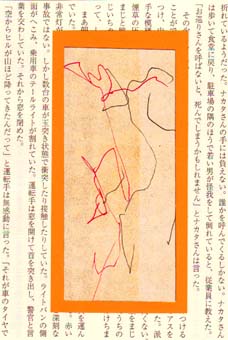 折れているようだった。ナカタさんの手には負えない。誰かを呼んでくるしかない。ナカタさん
は歩いて食堂に戻り、駐車場の隅のほうで若い男が怪我をして倒れていると、従業員に教えた。
「お巡りさんを呼ばないと、死んでしまうかもしれません」とナカタさんは言った。
その
ことがで つける
つけ、 アスを
手な模様 た。派
煙草の くない。
まじと をまじ
うちの
まじめ
まあ朝 を運ん
赤い
非常灯が 深刻な
事故ではない。しかし数台の車が玉突き状態で衝突したり接触したりしていた。ライトバンの側
面がへこみ、乗用車のテールライトが割れていた。運転手は窓を開けて首を突き出し、警官と言
葉を交わしていた。それから窓を閉めた。
「空からヒルが山ほど降ってきたんだって」と運転手は無感動に言った。「それが車のタイヤで